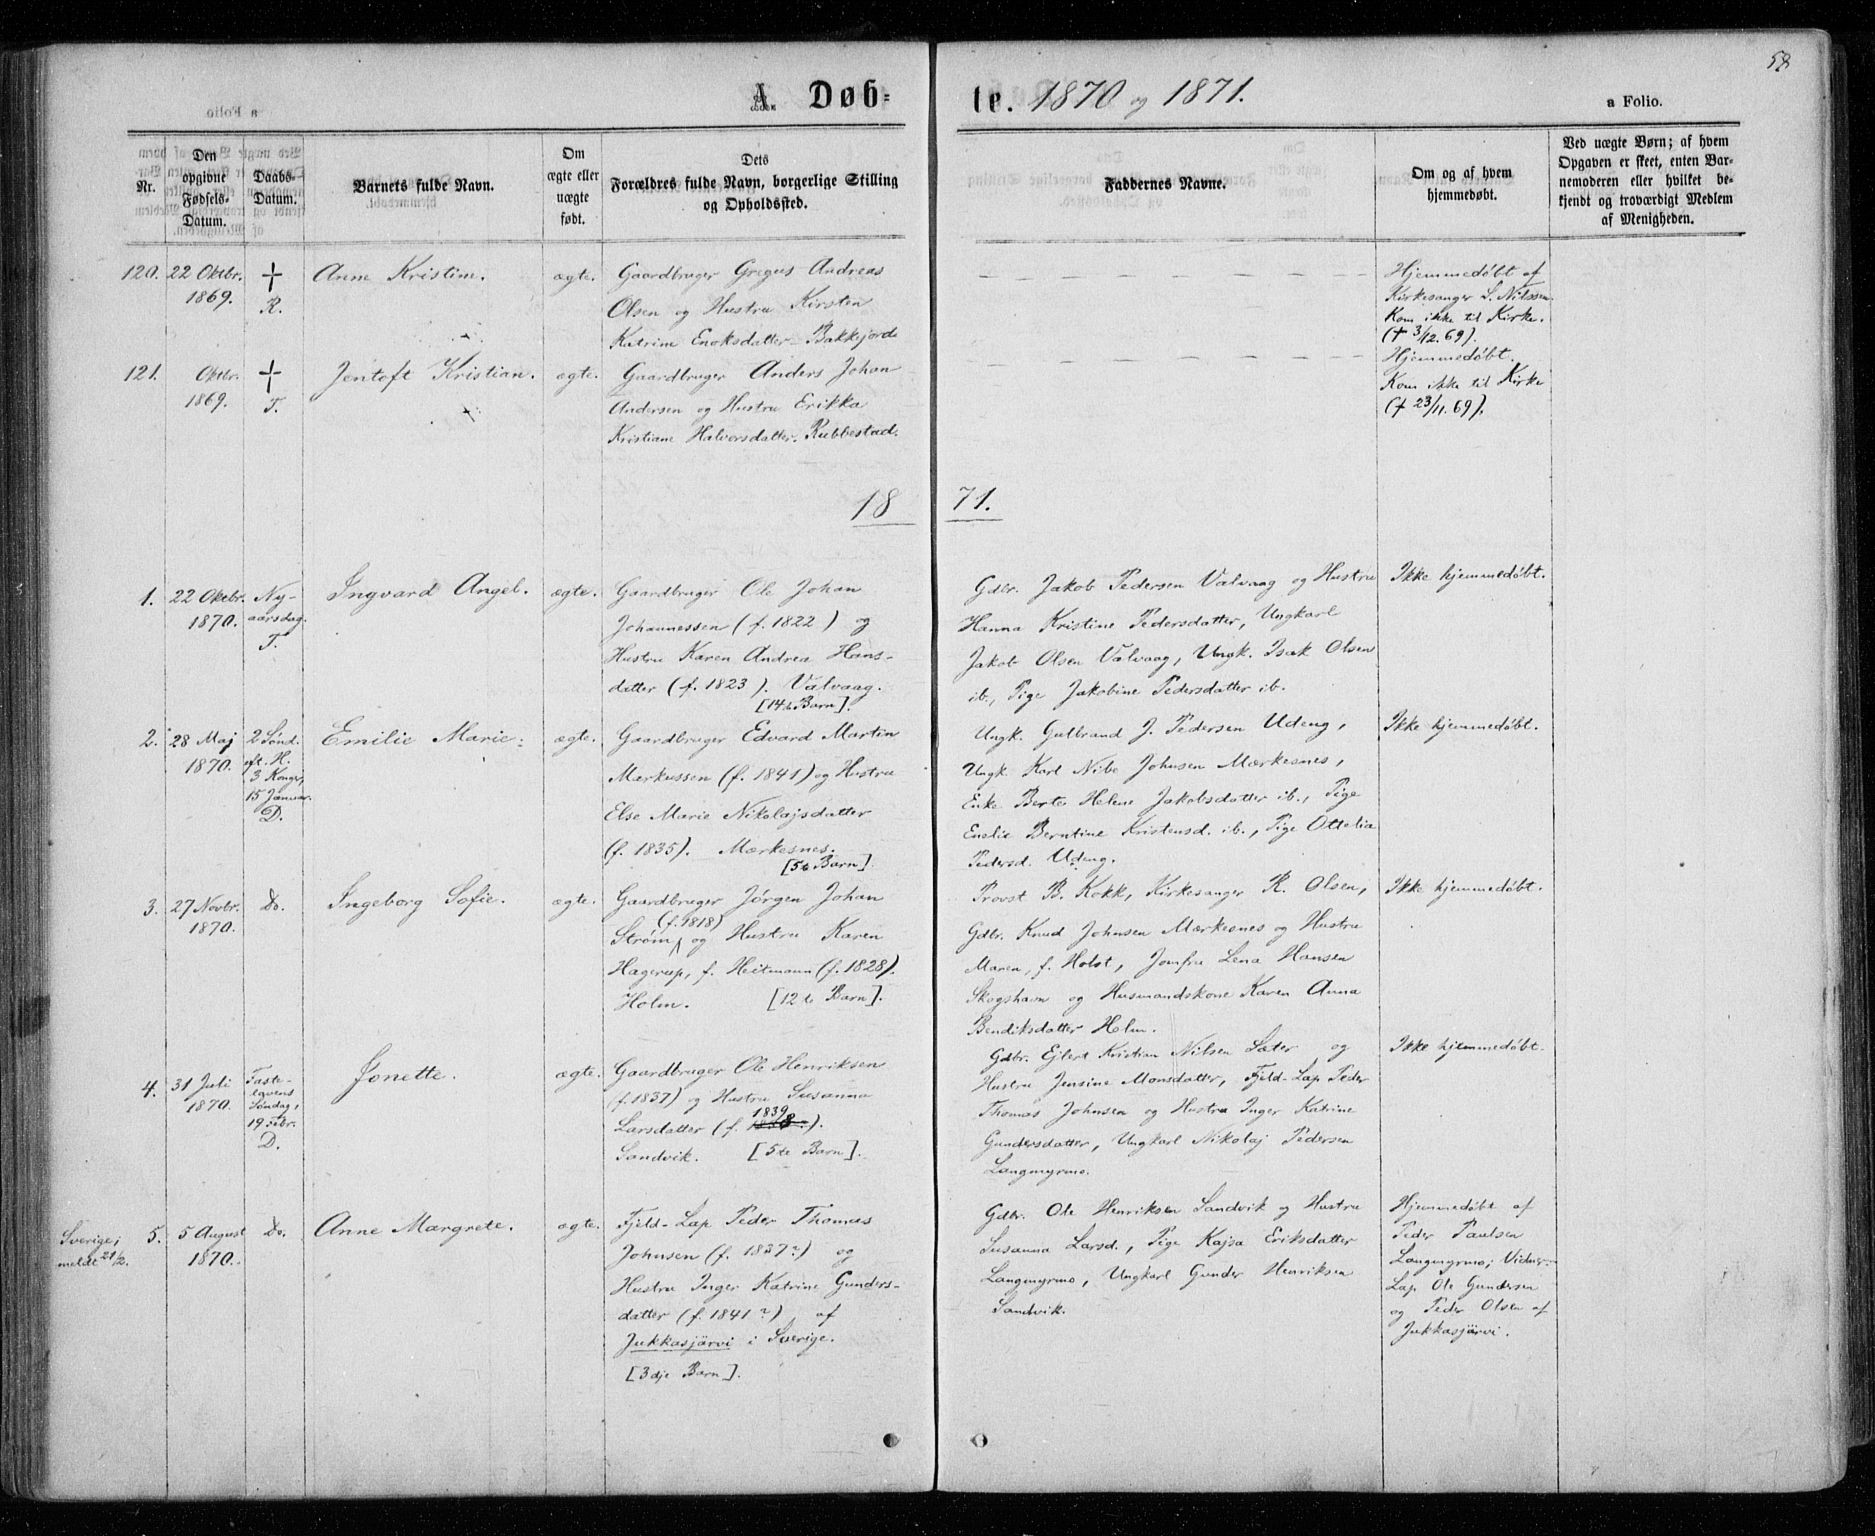 58
A. Døb=
te. 1870 og 1871.
a Folio.
Nr.
Den opgivne Fødsels-Datum.
Daabs-Datum.
Barnets fulde Navn.
Om ægte eller uægte født.
Dets Forældres fulde Navn, borgerlige Stilling og Opholdssted.
Faddernes Navne.
Om og af hvem hjemmedøbt.
Ved uægte Børn; af hvem Opgaven er skeet, enten Barnemoderen eller hvilket bekjendt og troværdigt Medlem af Menigheden.
120. 22 Oktbr. 1869. † R.
Anne Kristine. ægte.
Gaardbruger Gregus Andreas
Olsen og Hustru Kirsten
Katrine Enoksdatter Bakkejorde
Hjemmedøbt af
Kirkesanger L. Nilssen.
Kom ikke til Kirke.
(† 3/12. 69).
121. Oktbr. 1869. † T.
Jentoft Kristian. ægte.
Gaardbruger Anders Johan
Andersen og Hustru Erikka
Kristiane Halvorsdatter. Rubbestad.
Hjemmedøbt.
Kom ikke til Kirke
(† 23/11. 69).
18 71.
1. 22 Oktbr. 1870. Ny-
aarsdag.
T.
Ingvard Angel. ægte.
Gaardbruger Ole Johan
Johannessen (f. 1822) og
Hustru Karen Andrea Hans-
datter (f. 1823). Valvaag.
[14de Barn].
Gdbr. Jakob Pedersen Valvaag og Hustru
Hanna Kristine Pedersdatter, Ungkarl
Jakob Olsen Valvaag, Ungk. Isak Olsen
ib., Pige Jakobine Pedersdatter ib.
Ikke hjemmedøbt.
2. 28 Maj 1870. 2 Sønd.
eft. H.
3 Konger,
15 Januar.
D.
Emilie Marie. ægte.
Gaardbruger Edvard Martin
Markussen (f. 1841) og Hustru
Else Marie Nikolajsdatter
(f. 1835). Mærkesnes.
[5te Barn].
Ungk. Gulbrand J. Pedersen Udeng,
Ungk. Karl Nibe Johnsen Mærkesnes,
Enke Berte Helene Jakobsdatter ib., Pige
Enelie Berntine Kristensd. ib., Pige Ottelia
Pedersd. Udeng.
Ikke hjemmedøbt.
3. 27 Novbr. 1870. Do.
Ingeborg Sofie. ægte.
Gaardbruger Jørgen Johan
(f. 1818)
Strøm og Hustru Karen
Hagerup, f. Heitmann (f. 1828).
Holm. [12te Barn].
Provst B. Kokk, Kirkesanger R. Olsen,
Gdbr. Knud Johnsen Mærkesnes og Hustru
Maren, f. Holst, Jomfru Lena Hansen
Skogshavn og Husmandskone Karen Anna
Bendiksdatter Holm.
Ikke hjemmedøbt.
4. 31 Juli 1870. Faste-
lavens
Søndag,
19 Febr.
D.
Jonette. ægte.
Gaardbruger Ole Henriksen
(f. 1837) og Hustru Susanna
1839
Larsdatter (f. 1838).
Sandvik. [5te Barn].
Gdbr. Ejlert Kristian Nilsen Sæter og
Hustru Jensine Monsdatter, Fjeld-Lap Peder
Thomas Johnsen og Hustru Inger Katrine
Gundersdatter, Ungkarl Nikolaj Pedersen
Langmyrmo.
Ikke hjemmedøbt.
Sverige;
meldt 21/2.
5. 5 August 1870. Do.
Anne Margrete. ægte.
Fjeld-Lap Peder Thomas
Johnsen (f. 1837?) og
Hustru Inger Katrine Gunders-
datter (f. 1841?) af
Jukkasjärvi i Sverige.
[3dje Barn].
Gdbr. Ole Henriksen Sandvik og Hustru
Susanna Larsd., Pige Kajsa Eriksdatter
Langmyrmo, Ungkarl Gunder Henriksen
Sandvik.
Hjemmedøbt af
Peder Paulsen
Langmyrmo; Vidner:
Lap Ole Gundersen
og Peder Olsen af
Jukkasjärvi.